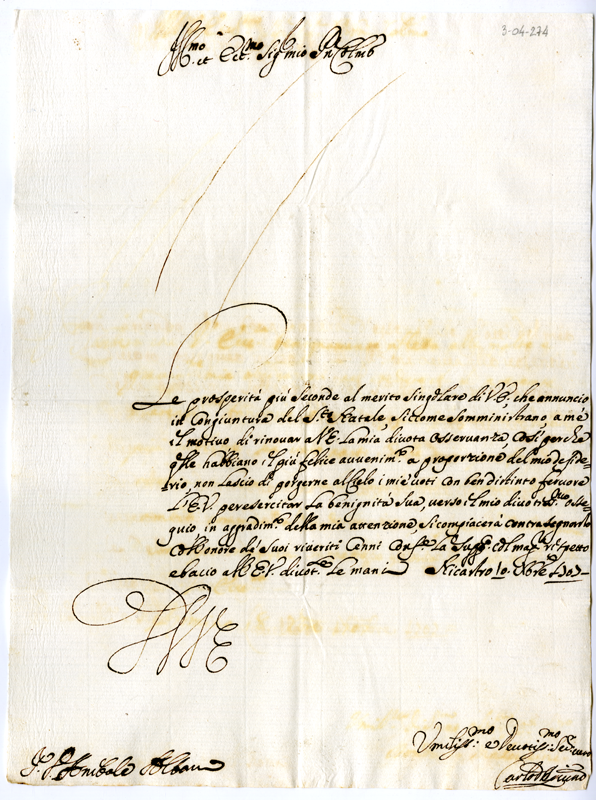 3-04-274
Ill.mo et Ecc.mo Sig.r mio
Le prosperità più seconde al merito singolare di V.E. che annuncio
in congiuntura del S.to Natale, siccome somministrano a me
il motivo di rinovar a V.E. la mia divota osservanza, così perche
q.ste habbiano il più felice avvenim.to a proporzione del mio deside-
rio, non lascio di porgerne al Cielo i miei voti con ben distinto fervore
L'E.V. per esercitar la benignità sua, verso il mio divotis.mo osse-
quio in aggradim.to della mia attenzione, si compiacerà contrasegnarlo
coll'onore de suoi riveriti cenni con che la supp.co col mag.r rispetto
e bacio all'E.V. divot.te le mani Nicastro 10 Xbre
V E
Umiliss.mo e Devotiss.mo
D. Anibale Albani
Carlo